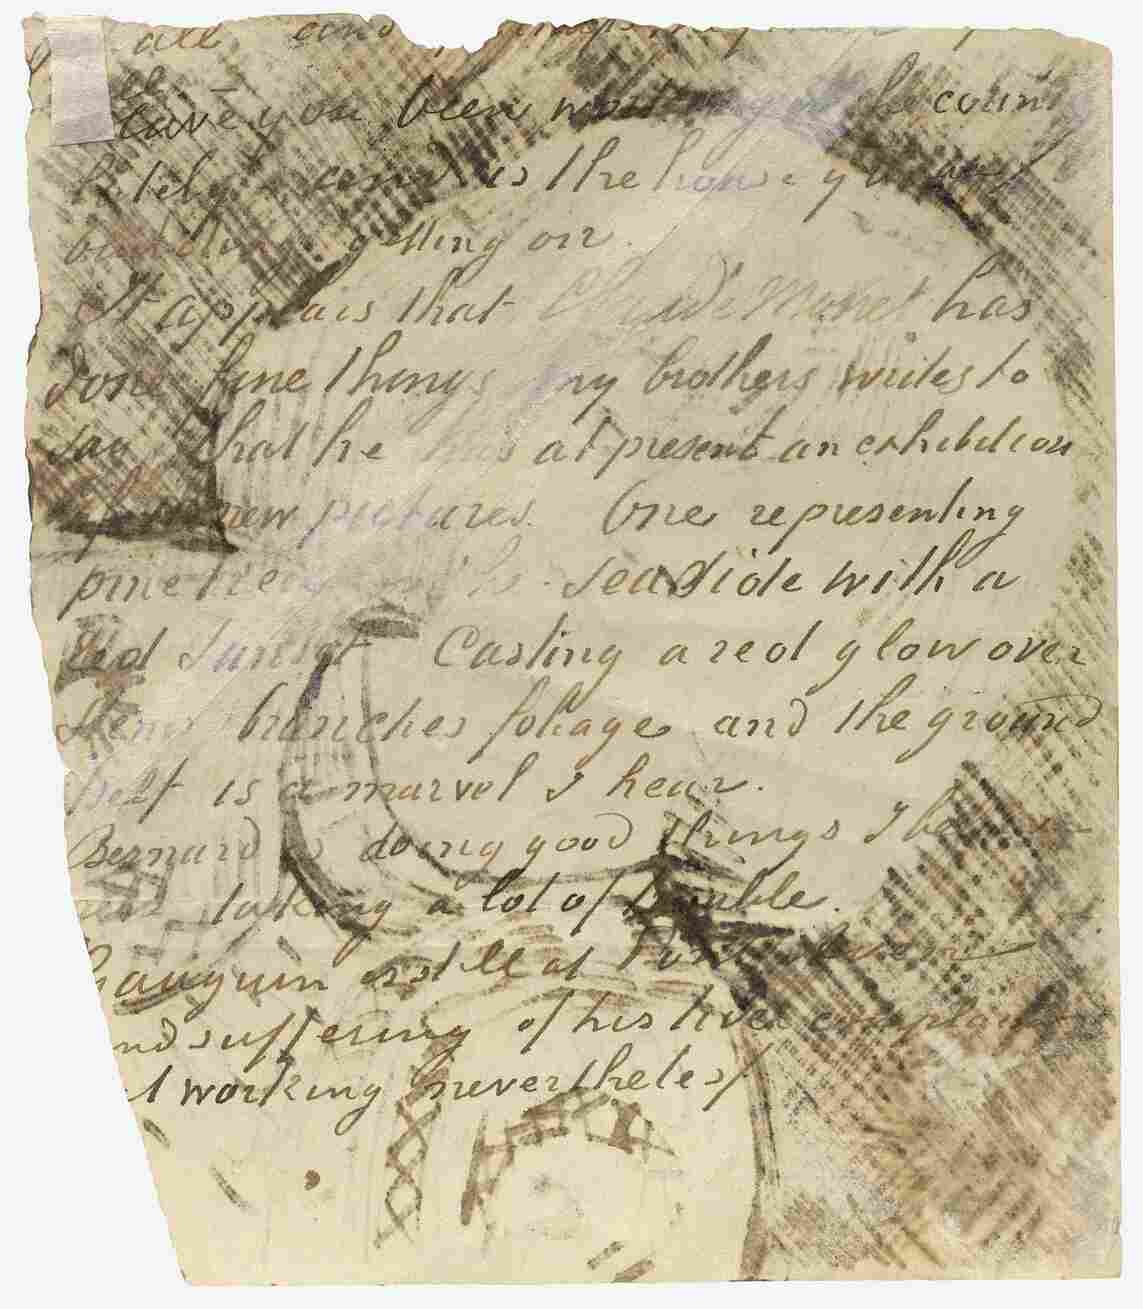 all and
Have you been working in the country
lately and is the house you are
building getting on.
It appears that Claude Monet has
done fine things my brothers writes to
say that he has at present an exhibition
of new pictures. One representing
pine trees the seaside with a
red Sunset Casting a red glow over
Stems branches foliage and the ground
itself is a marvel I hear.
Bernard is doing good things I
and taking a lot of trouble.
Gauguin is still at Pont
and suffering of his liver complaint
but working nevertheless